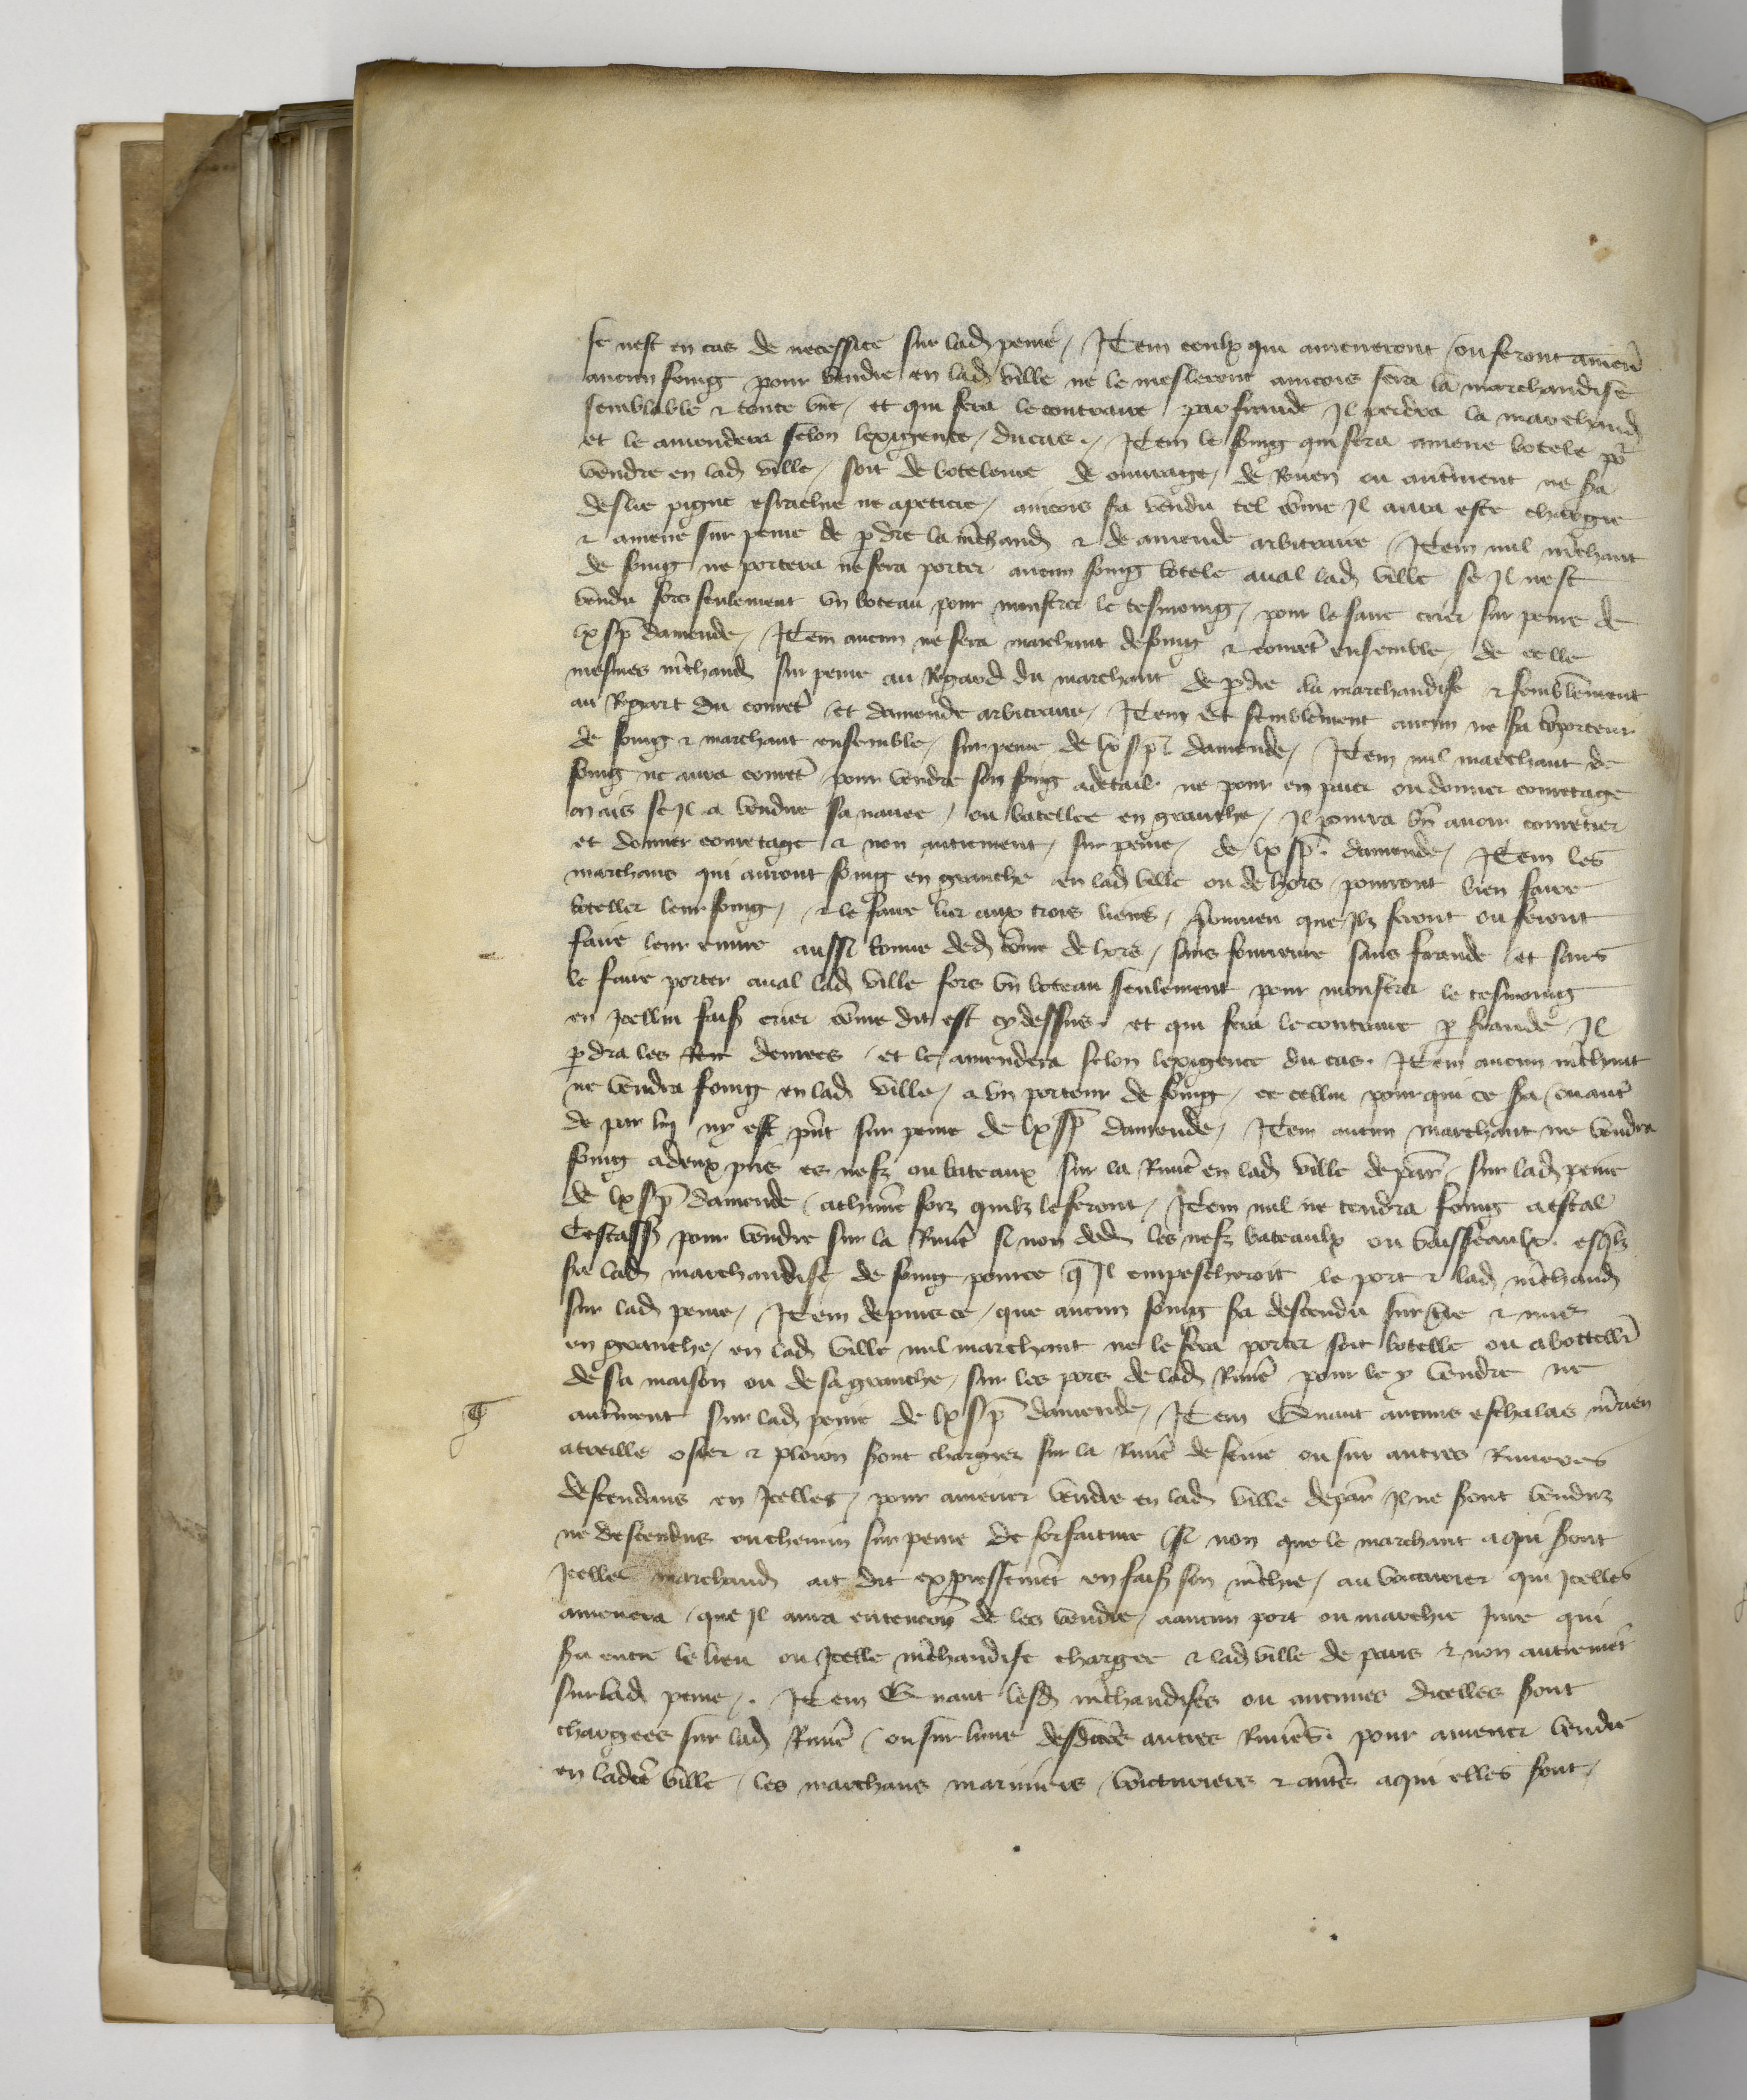 se nest en cas de necessite sur lad peine / Item ceulx qui ameneront / ou feront amen
aucun foing pour vendre en lad ville ne le mesleront aincois sera la marchandise
semblable & toute vne / et qui fera le contraire par fraude Il perdra la marchand
et le amendera selon lexigence / du cas . / Item le foing qui sera amene botele po
vendre en lad ville / soit de boteleure de ouurage / de Rouen ou autment ne sa
deslie pigne esrachie ne apeticie / aincois sa vendu tel come Il aura este chargie
& amene sur peine de pdre la mchand & de amende arbitraire / Item nul mchant
de foing ne portera ne fera porter aucun foing botele aual lad ville se Il nest
vendu fors seulement vn boteau pour monstrer le tesmoing / pour le faire crier sur peine de
lx s p damende / Item aucun ne sera marchant de foing & couret ensemble / de celle
mesmes mchand sur peine au Regard du marchant de pdre la marchandise & semblement
au Regart du couret et damende arbitraire / Item Et semblement aucun ne sa porteur
de foing & marchant ensemble / sur peine de lx s p damende / Item nul marchant de
foing ne aura couret pour vendre son foing a detail ne pour en paier ou donner couretage
mais se Il a vendue sa nauee / ou batellee en granche / Il pourra bn auoir couretier
et donner couretage & non autrement / sur peine / de lx s p . damende / Item les
marchans qui auront foing en granche en lad ville ou dehors pourront bien faire
boteller leur foing / & le faire lier aux trois liens / pourueu que Ilz feront ou feront
faire leur euure aussi bonne ded come dehors / sans fourreure sans fraude et sans
le faire porter aual lad ville fors vn boteau seulement pour monstrer le tesmoing
en Icellui fais crier come dit est cy dessus . et qui fera le contraire p fraude Il
pdra les denrees / et le amendera selon lexigence du cas . Item aucun mchant
ne vendra foing en lad ville / a vn porteur de foing / se cellui pour qui ce sa ou aut
de par luy ny est pnt sur peine de lx s p damende / Item aucun marchant ne vendra
foing a deux pris es nefz ou bateaux sur la Riuie en lad ville de par / sur lad peine
de lx s p damende / a chune fois quilz le feront / Item nul ne tendra foing a estal
pour vendre sur la Riuie si non ded les nefz bateaulx ou vaisseaulx . esqlz
sa lad marchandise de foing pource q Il empescheroit le port & lad mchand
sur lad peine / Item depuis ce / que aucun foing sa descendu sur tre & mis
en granche / en lad ville nul marchant ne le fera porter soit botelle ou a bottell
de sa maison ou de sa granche / sur les pors de lad Riuie pour le y vendre ne
autment sur lad peine de lx s p damende / Item Quant aucuns eschalas mrien
a treille osier & ploion sont chargiez sur la Riuie de seine ou sur autres Riuieres
descendans en Icelles / pour amener vendre en lad ville de par Il ne sont venduz
ne descenduz en chemin sur peine de forfaiture / Si non que le marchant a qui sont
Icelles marchand ait dit expressemet en fais son mchie / au voicturier qui Icelles
amenera / que Il aura entencion de les vendre / a aucun port ou marchie Jure qui
sa entre le lieu ou Icelle mchandise chargee & lad ville de paris & non autremet
sur lad peine / . Item Quant lesd mchandises ou aucunes dicelles sont
chargees sur lad Riuie / ou sur lune desdictes autres Riuies . pour amener vendre
en ladcte ville / les marchans mariniers / voicturiers & autres a qui elles sont /